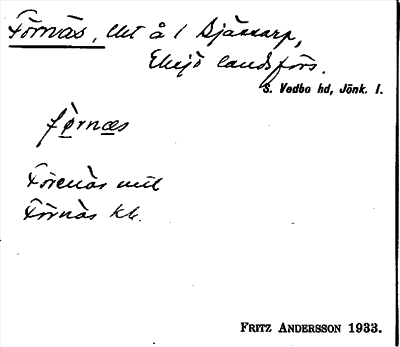 Förnäs, Utt å i Bjäkarp,
Eksjö landsförs.
S. Vedbo hd, Jönk. l.
førnæs
Förenäs
Förnäs kb.
FRITZ ANDERSSON 1933.